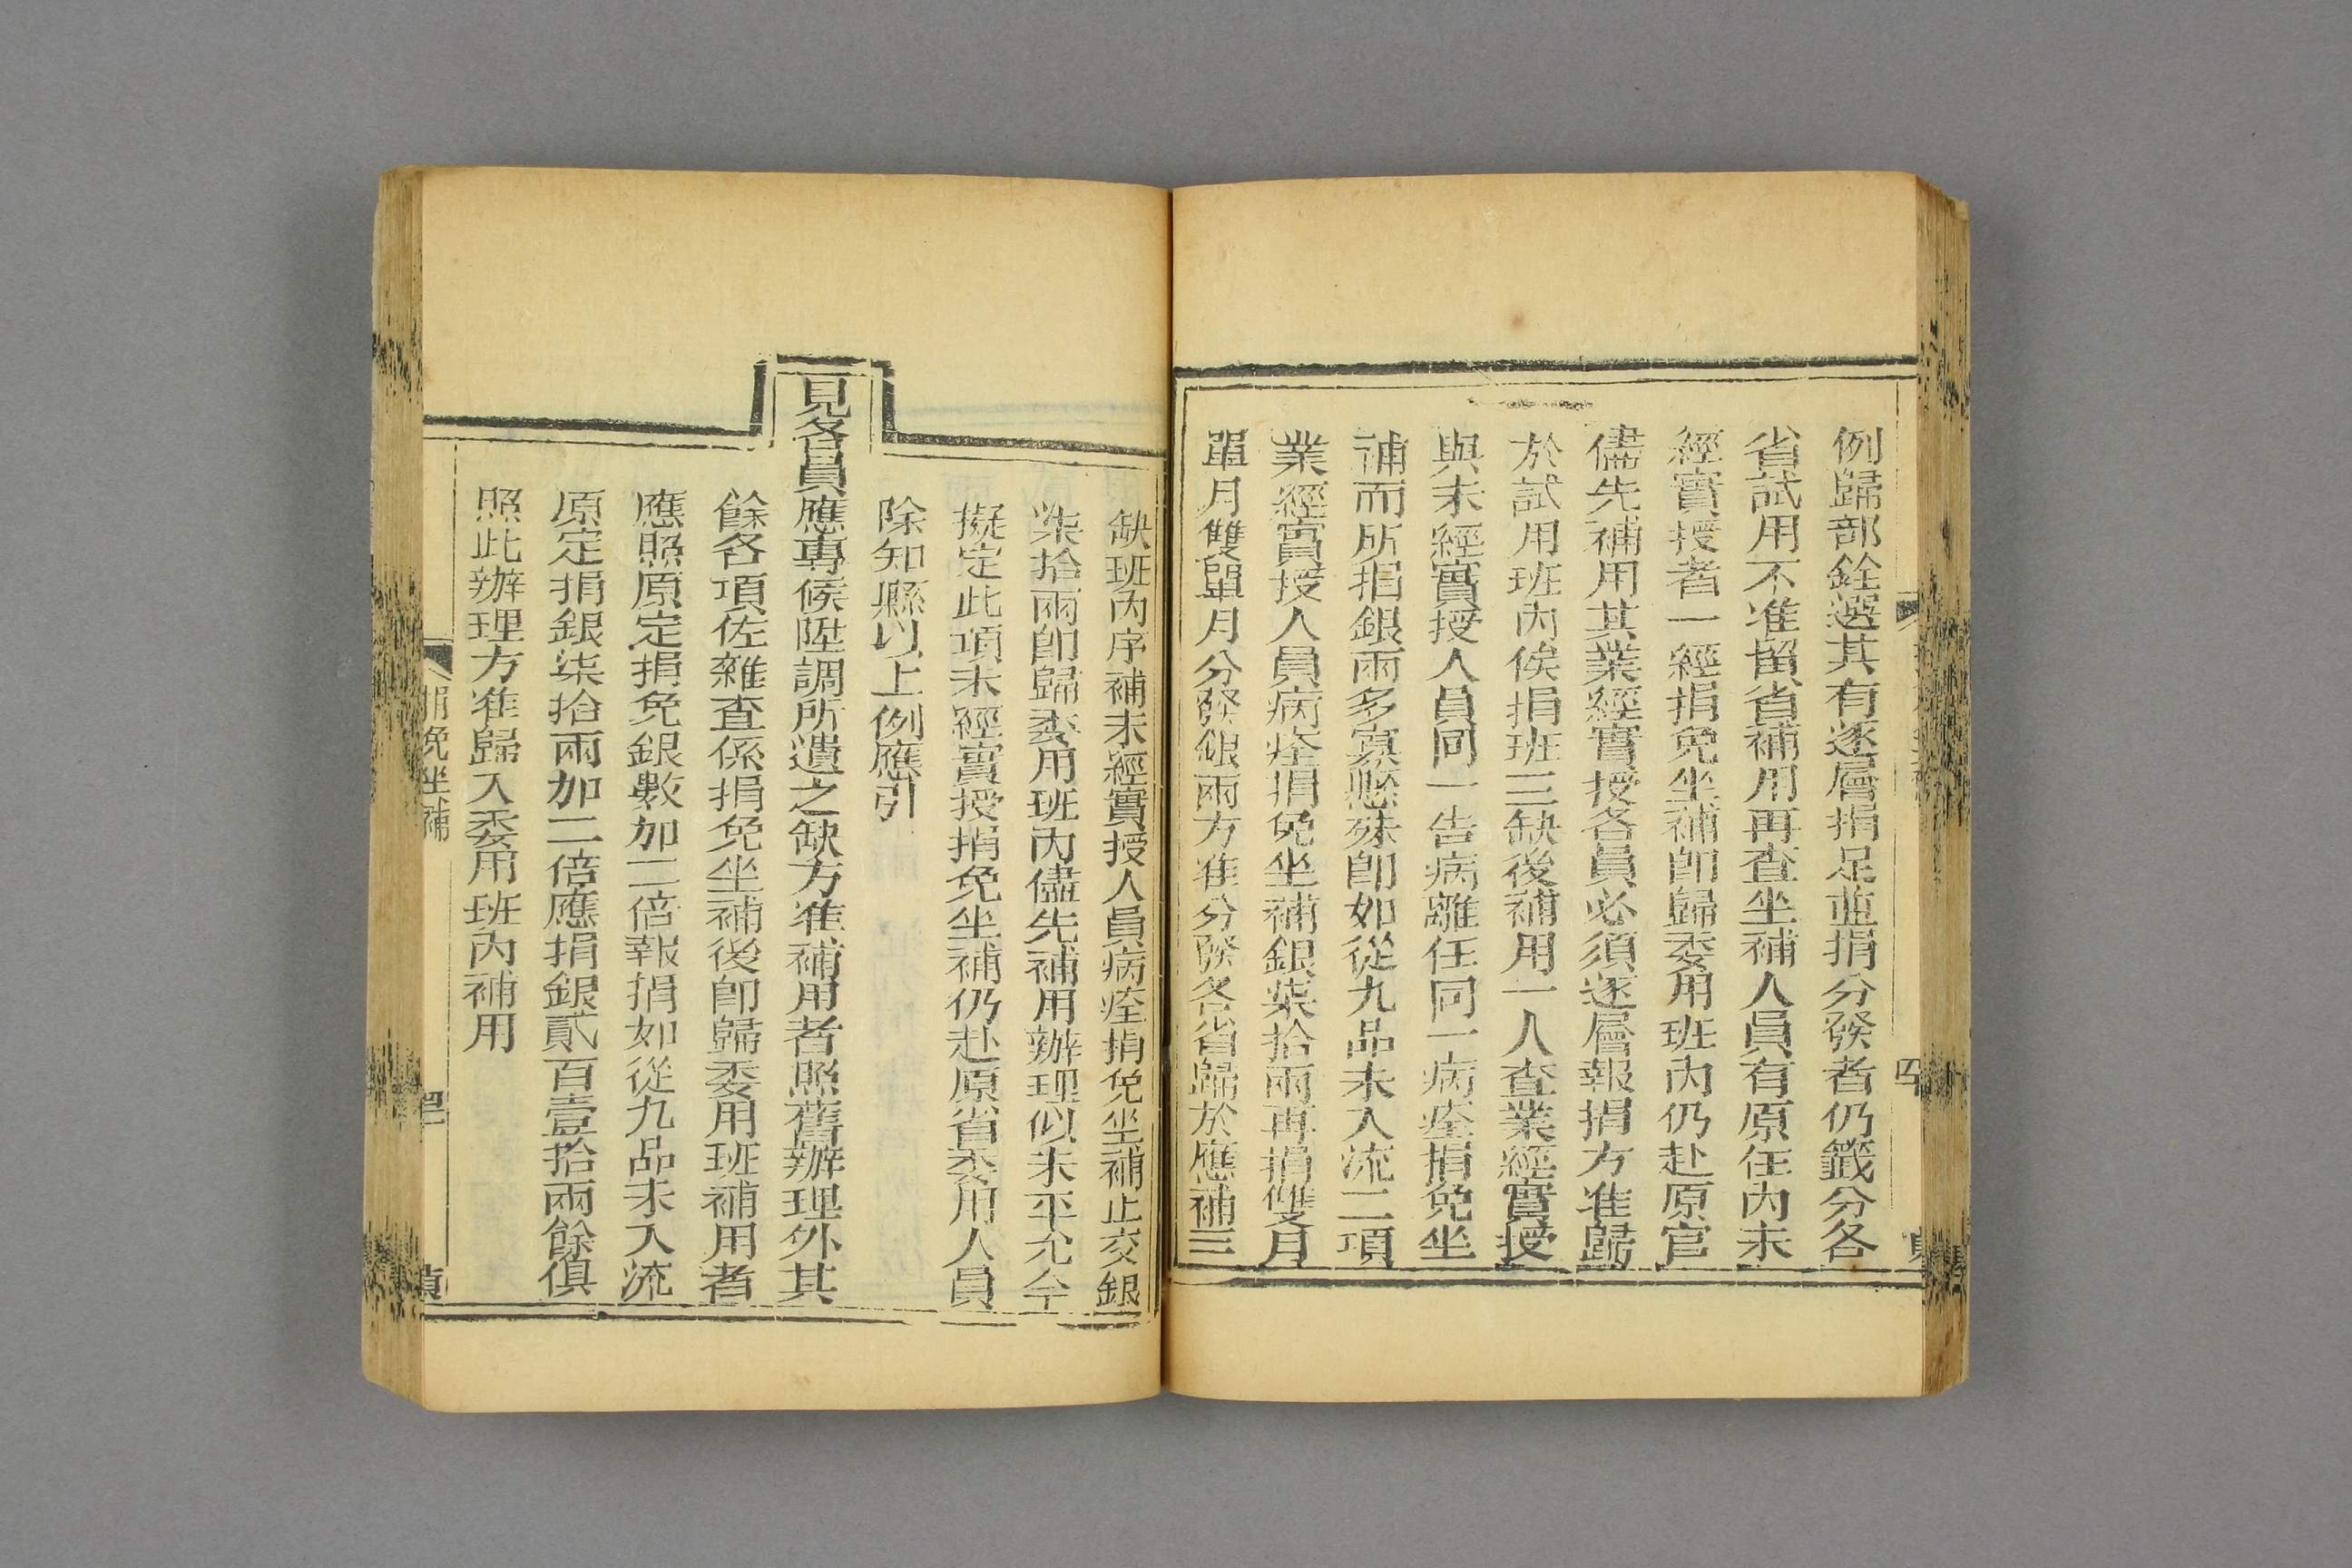 例歸部銓選其有逐層捐足並捐分發者仍籤分各
省試用不准留省補用再查坐補人員有原任內未
經實授者一經捐免坐補卽歸委用班內仍赴原官
儘先補用其業經實授各員必須逐層報捐方准歸
於試用班內俟捐班三缺後補用一人查業經實授
與未經實授人員同一告病離任同一病痊捐免坐
補而所捐銀兩多寡懸殊卽如從九品未入流二項
業經實授人員病痊捐免坐補銀柒拾兩再捐雙月
單月雙單月分發銀兩方准分發各省歸於應補三
缺班內序補未經實授人員病痊捐免坐補止交銀
柒拾兩卽歸委用班內儘先補用辦理似未平允今
擬定此項未經實授捐免坐補仍赴原省委用人員
除知縣以上例應引
見各員應專候陞調所遺之缺方准補用者照舊辦理外其
餘各項佐雜查係捐免坐補後卽歸委用班補用者
應照原定捐免銀數加二倍報捐如從九品未入流
原定捐銀柒拾兩加二倍應捐銀貳百壹拾兩餘俱
照此辦理方准歸入委用班內補用
捐免坐補